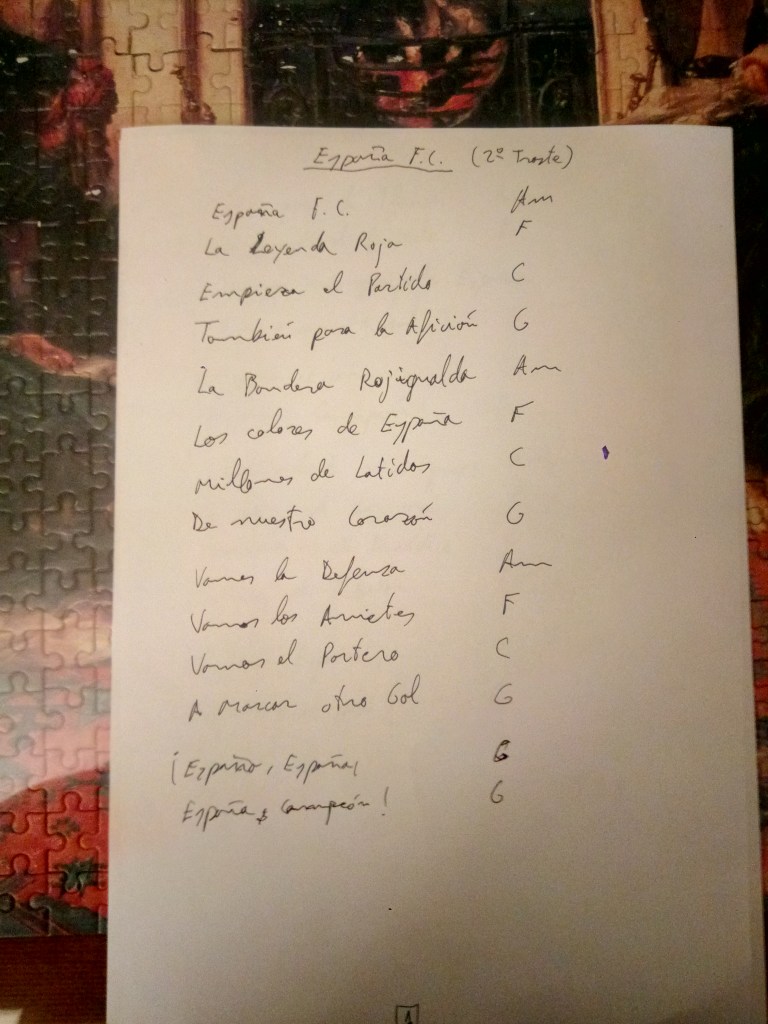 España F.C. (2º Traste)
España F.C. Am
La Leyenda Roja F
Empieza el Partido C
También para la Afición G
La Bandera Rojigualda Am
Los colores de España F
Millones de Latidos C
De nuestro Corazón G
Vamos la Defensa Am
Vamos los Arietes F
Vamos el Portero C
A Marcar otro Gol G
¡España, España, G
España Campeón! G
1